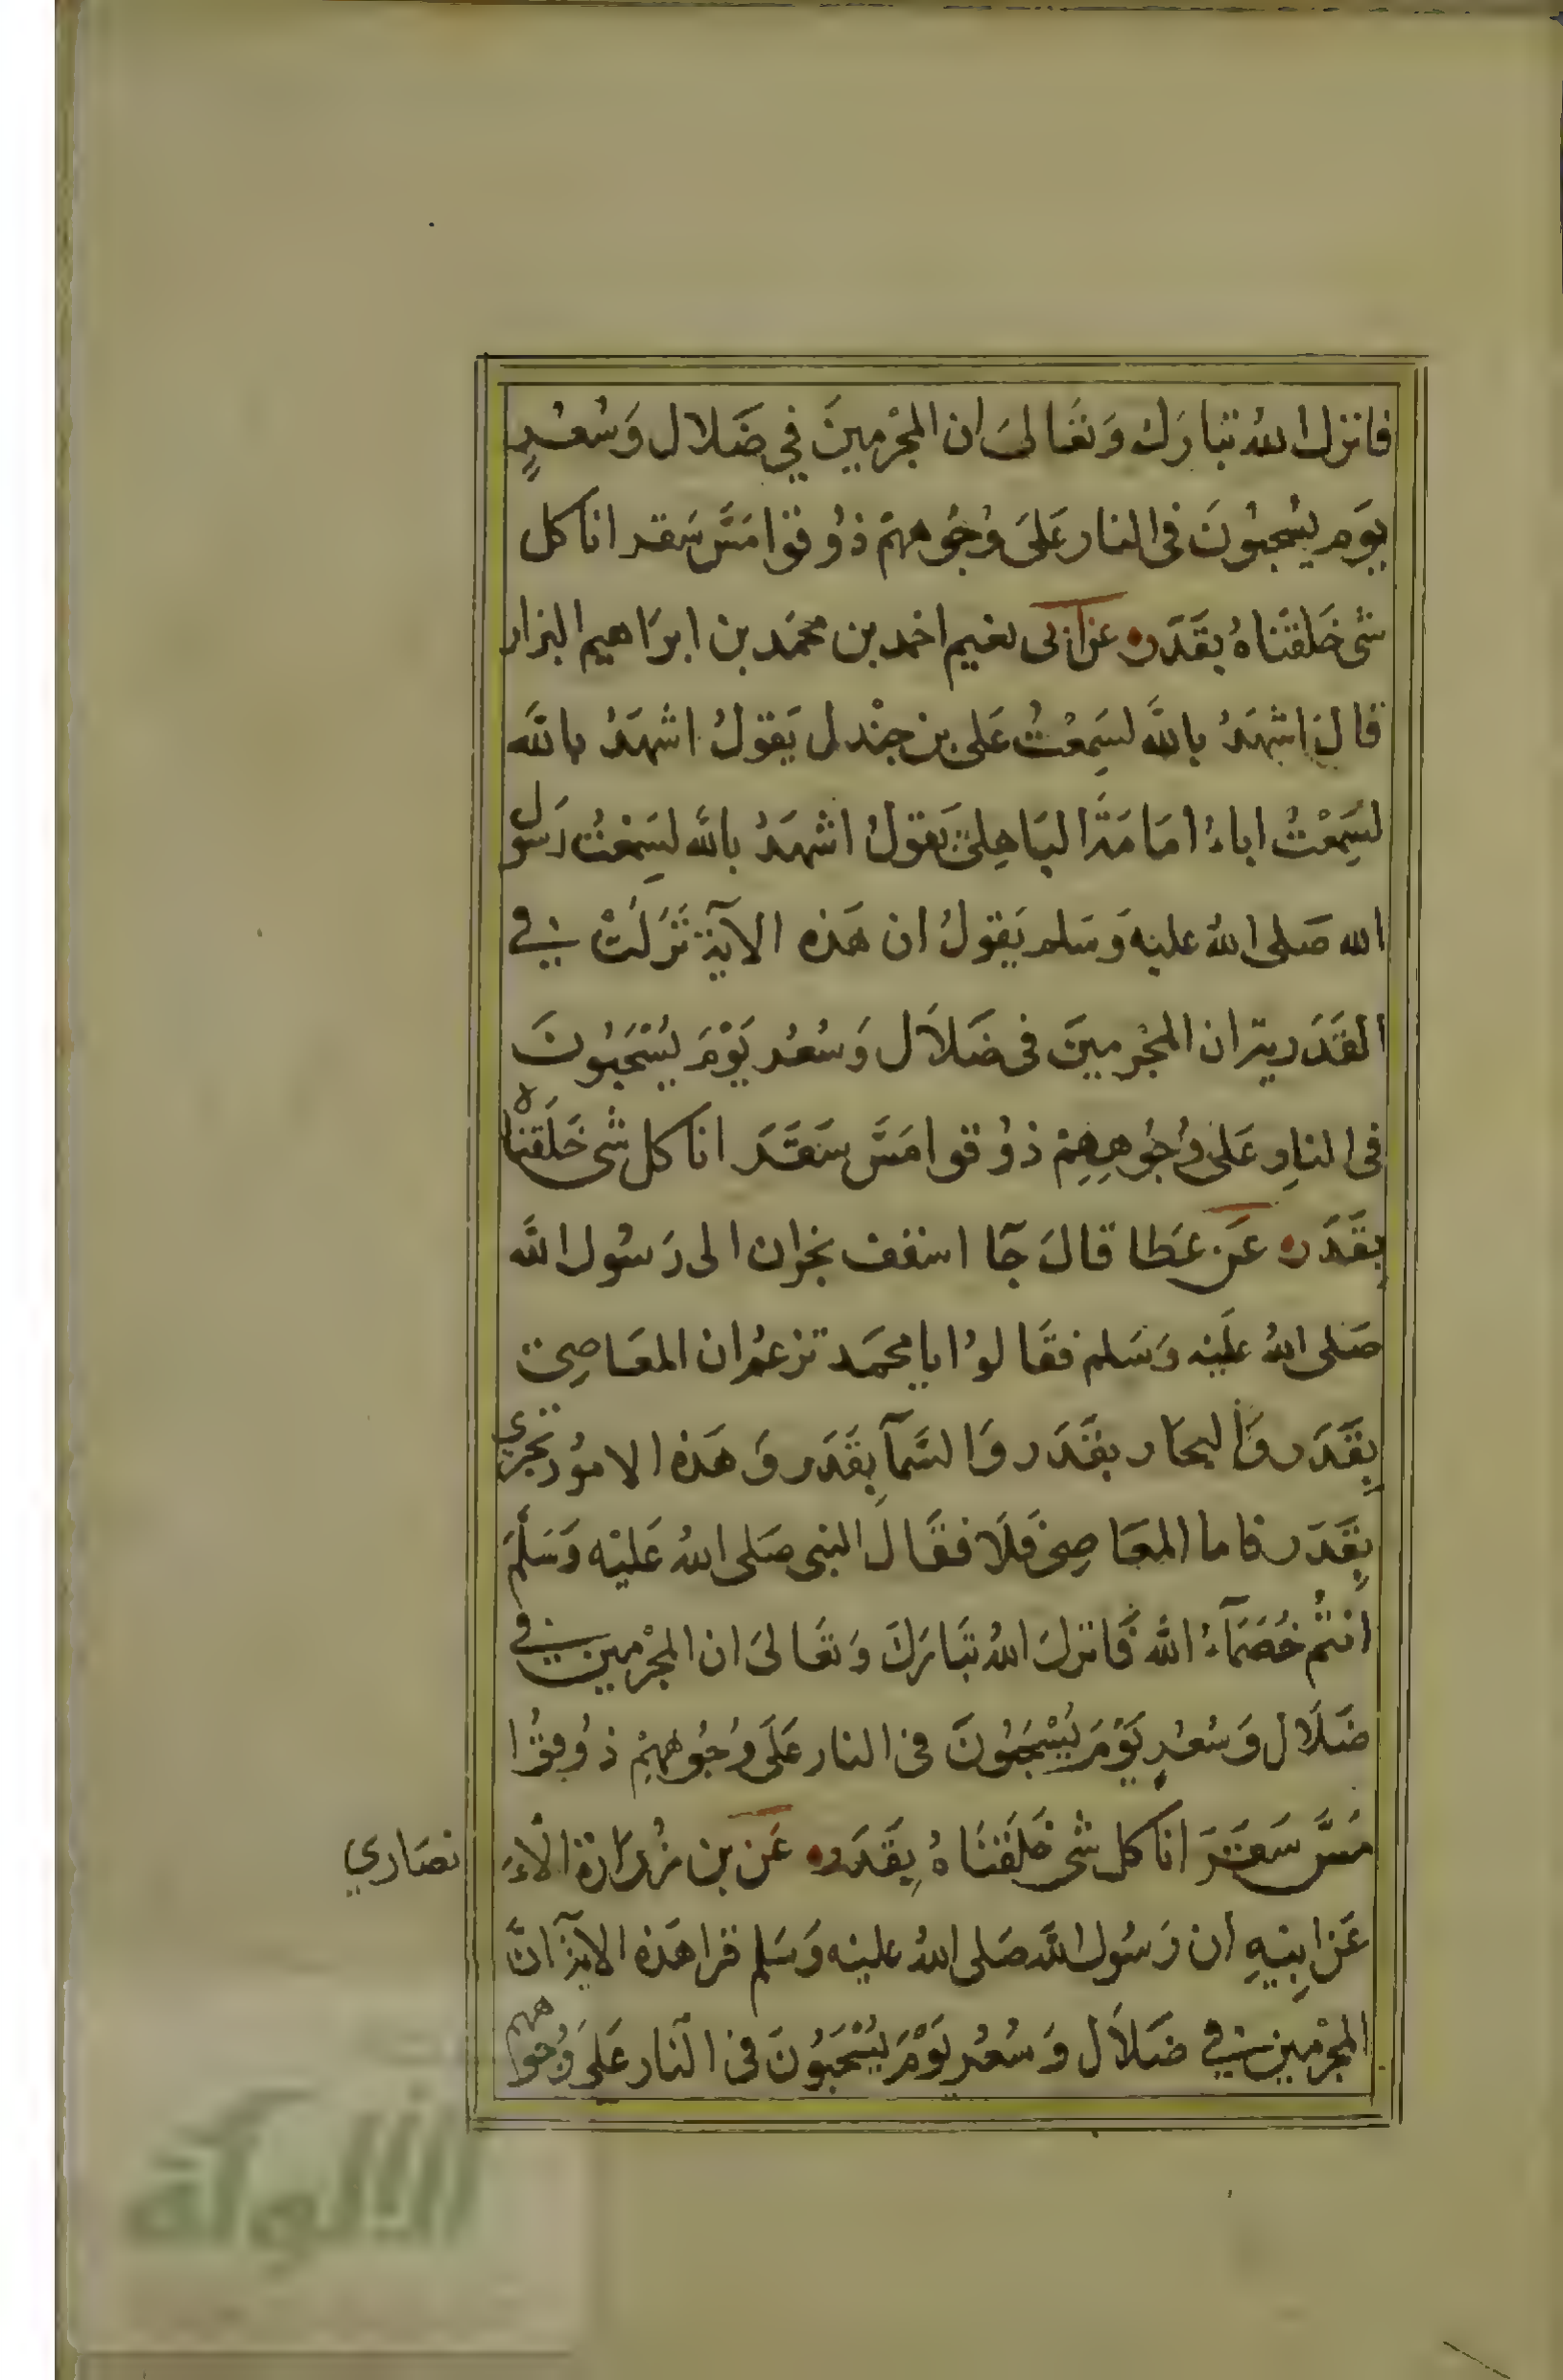 فانزل الله تبارك وَتعَالىَ ان المجْرمينَ في ضَلال وَسُعُرٍ
يوَم يسُحبوُنَ فى النار عَلىَ وُجُوههمْ ذوُقوا مَسَّ سَقر انا كل
شى خَلقنَاهُ بقَدَر عن ابى نعيم احمد بن محمَد بن ابرَاهيم البزار
قالَ اشهَدُ باللَّه لسَمِعْتُ عَلى بن جنْدل يَقولُ اشهَدُ باللَّه
لسَمِعْتُ اباءُ امَامَةَ البَاهِلىّ يَقولُ اشهَدُ باللَّه لسَمِعْتُ رَسول
الله صَلى اللهُ عليْه وَسَلم يَقولُ ان هَذه الآية نَزَلَتْ في
القَدَرية ان المجْرمينَ فى ضَلاَل وَسُعُر يَوْمَ يُسْحَبُونَ
فى النارِ عَلىَ وُجُوهِهِمْ ذوُقوا مَسَّ سَقَرَ انا كل شى خَلَقْنَاهُ
بقَدَر عَن عَطا قالَ جَآ اسقف نجران الى رَسُول اللَّه
صَلى اللهُ عَليْه وَسَلم فقَالوُا يا محمَد تزعمُ ان المعَاصِىَ
بِقَدَر وَالبحَار بقَدَر وَالسَّمآ بِقَدَر وَهَذه الامُور تجْرِي
بِقَدَر فاما المعَاصِى فَلَا فقَالَ النبى صَلى اللهُ عَليْه وَسَلَّمَ
انتُم خُصَمَآءُ اللَّه فَانزلَ اللهُ تبَارَكَ وَتعَالىَ ان المجْرمين في
ضَلَال وَسُعُرٍ يَوْمَ يُسْحَبُونَ فى النار عَلَى وُجُوههِمْ ذوُقوُا
مَسَّ سَقَرَ انا كل شى خَلَقْنَاهُ بِقَدَر عَن بن زُرَارَة الاَء نصَاري
عَن ابِيْهِ ان رَسُول اللَّه صَلى اللهُ عليْه وَسَلم قرا هَذه الآية انَّ
المجْرْمين في ضَلاَل وَسُعُر يَوْمَ يُسْحَبُونَ فى النَّار عَلىَ وُجُوههم
الألوكة